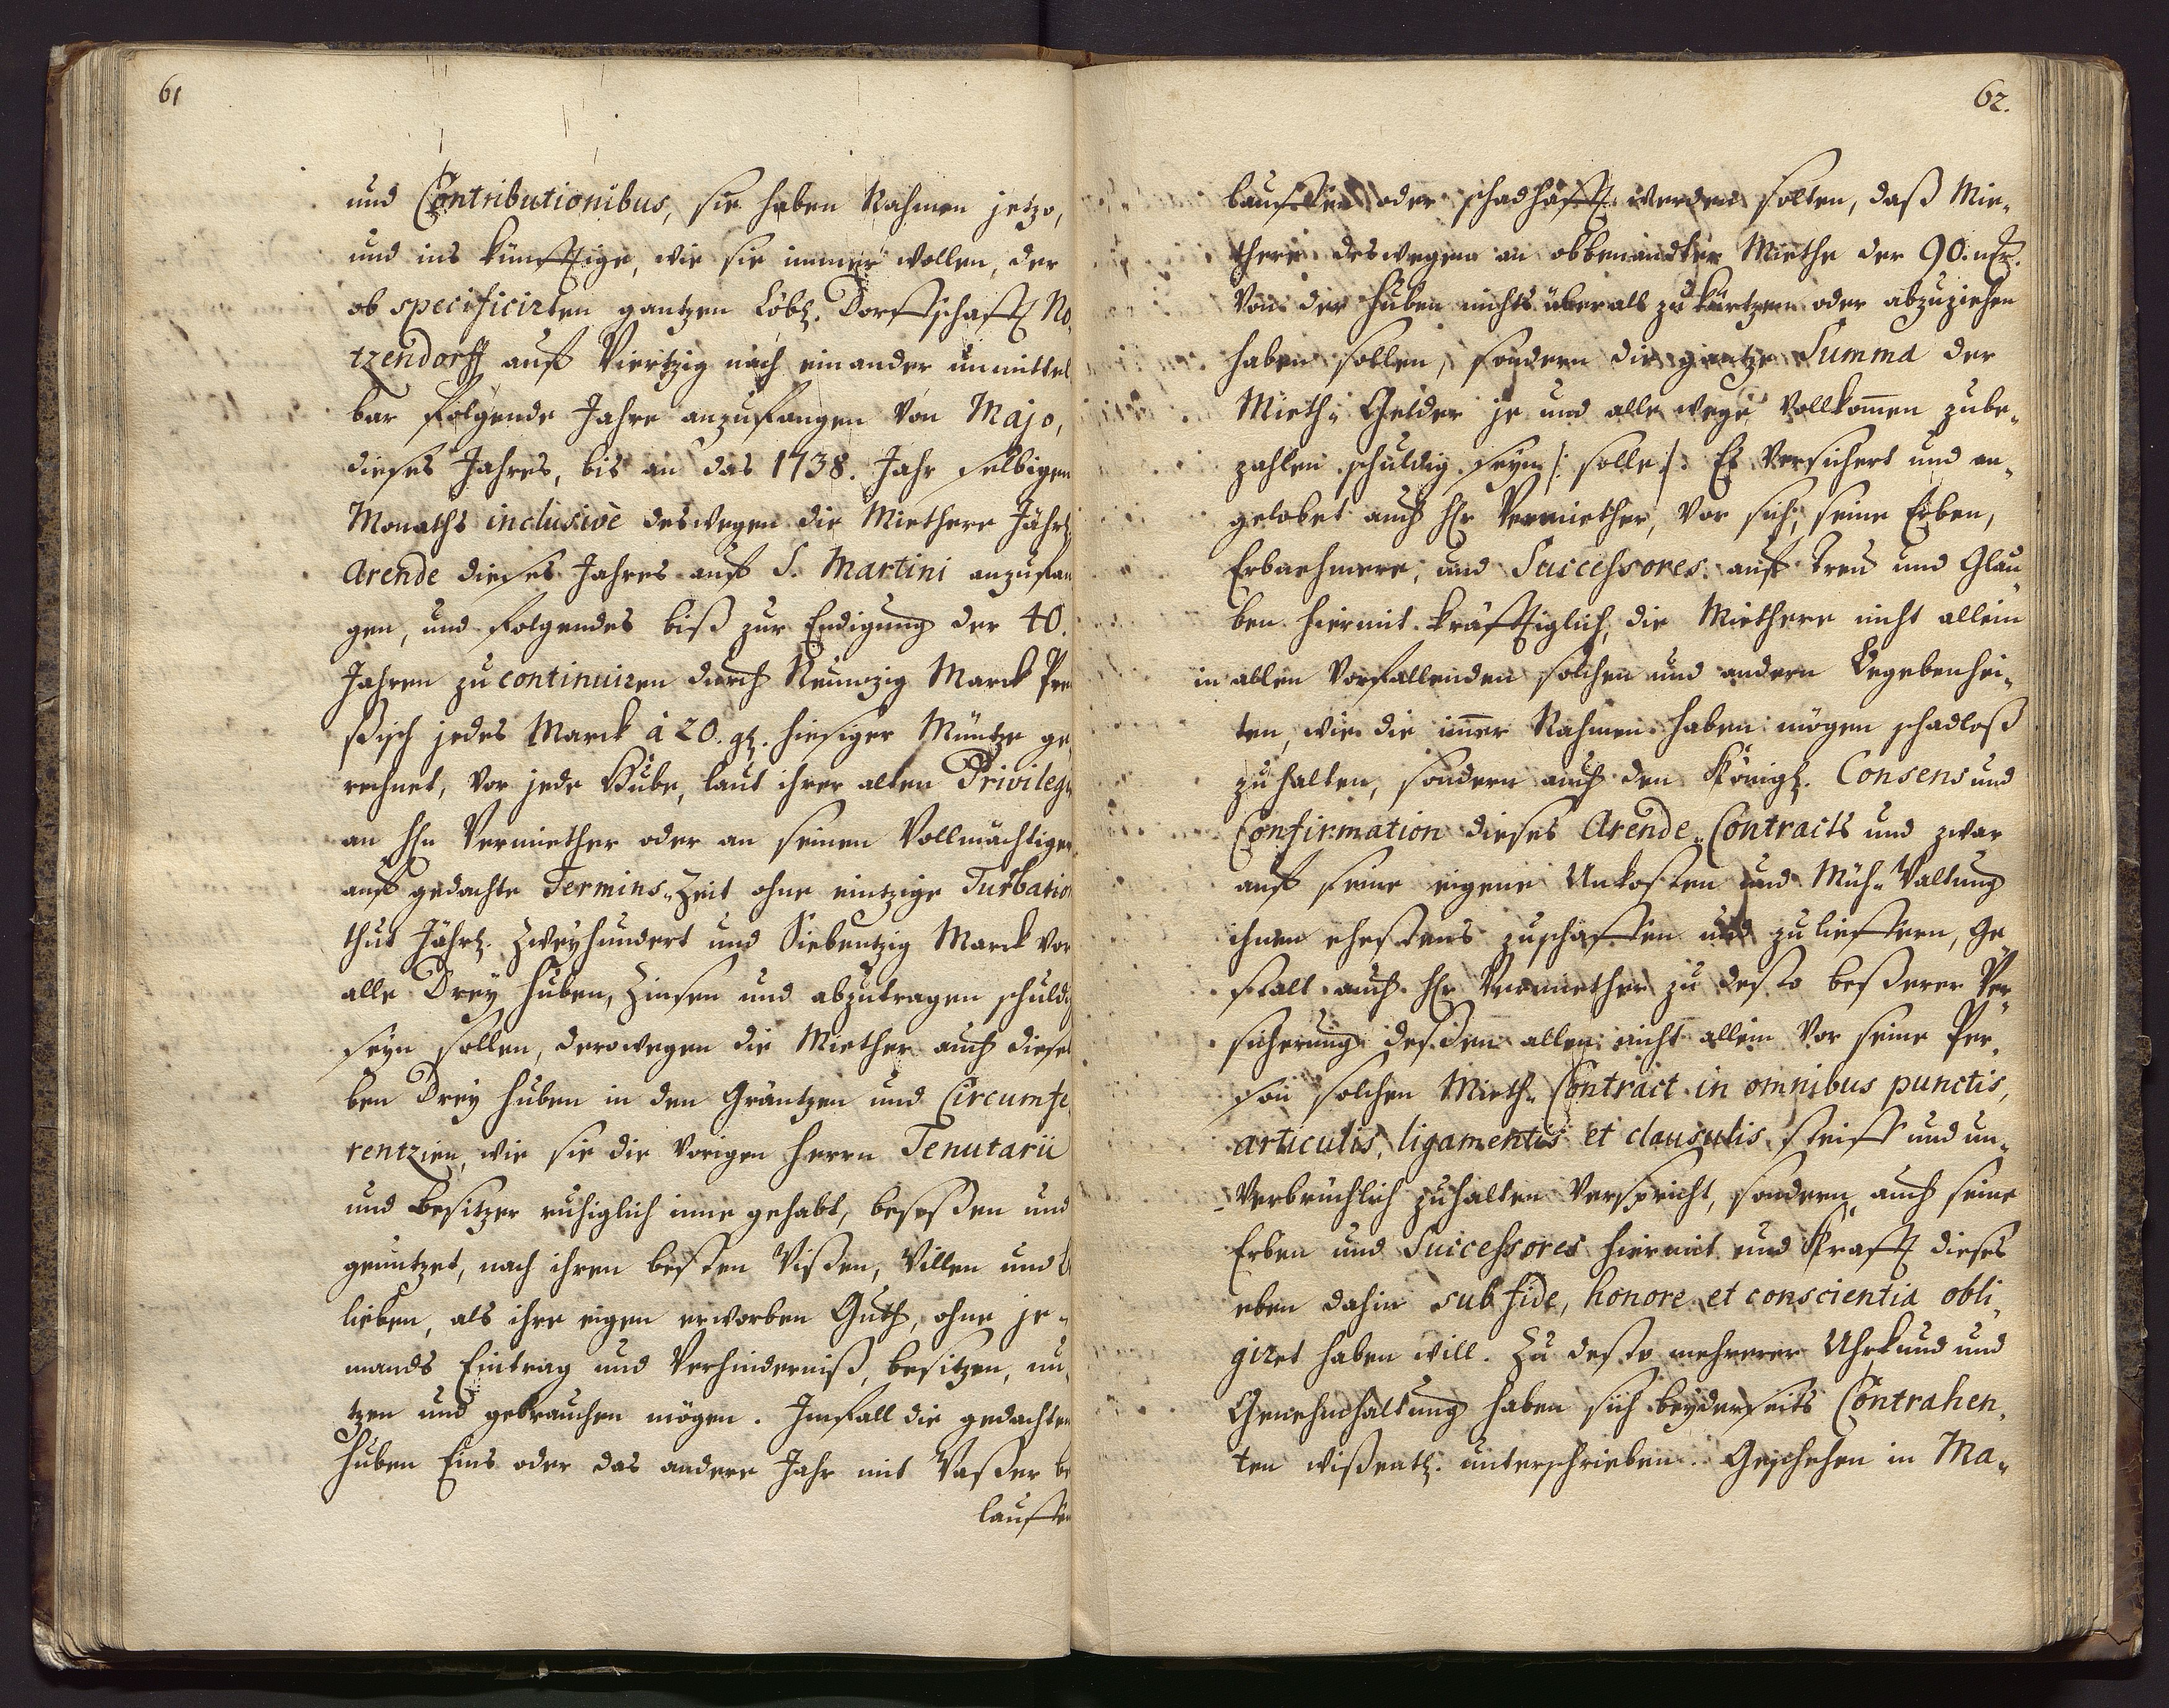 61
und Contributionibus, sie haben Nahmen jetzo,
und ins künfftige, wie sie immer wollen, der
ob specificirten gantzen Löbl. Dorffschafft No,
tzendorff auff Viertzig nach einander unmittel
bar folgende Jahre anzufangen von Majo,
dieses Jahres, bis an das 1738. Jahr selbigen
Monaths inclusivè deswegen die Miethere Jährl
Arende dieses Jahres auff S. Martini anzufan
gen, und folgendes biß zur Endigung der 40.
Jahren zu continuiren durch Neuntzig Marck Preu
ßisch jedes Marck à 20. gl. hiesiger Müntze ge,
rechnet, vor jede Hube, laut ihrer alten Privilegi
an HEn Vermiether oder an seinen Vollmächtigen
auff gedachte Termins-Zeit ohne eintzige Turbation
thut Jährl. Zweyhundert und Siebentzig Marck vor
alle Drey Huben, Zinsen und abzutragen schuldig
seyn sollen, derowegen die Miether auch diesel
ben Drey Huben in den Gräntzen und Circumfe,
rentzien, wie sie die vorigen Herrn Tenutarii
und Besitzer ruhiglich inne gehabt, beseßen und
genutzet, nach ihren besten Wißen, Willen und
lieben, als ihre eigen erworben Guth, ohne je-
mands Eintrag und Verhinderniß, besitzen, nu,
tzen und gebrauchen mögen. Imfall die gedachten
Huben Eins oder das andere Jahr mit Waßer be
lauffen
62.
lauffen oder schadhafft werden solten, daß Mie,
there deswegen an obbenandter Miethe der 90. mr.
von der Huben nichts überall zu kürtzen oder abzuziehen
haben sollen, sondern die gantze Summa der
Mieth-Gelder je und alle wege vollkom̄en zube,
zahlen schuldig seyn /: solle :/. Es versichert und an,
gelobet auch HEr Vermiether, vor sich, seine Erben,
Erbnehmere, und Successores auff Treu und Glau
ben hiermit kräfftiglich, die Miethere nicht allein
in allen vorfallenden solchen und andern Begebenhei,
ten, wie die im̄er Nahmen haben mögen schadloß
zuhalten, sondern auch den Königl. Consens und
Confirmation dieses Arende-Contracts und zwar
auff seine eigene Unkosten und Müh-Waltung
ihnen ehestens zuschaffen und zulieffern, Ge
stalt auch HEr Vermiether zu desto beßerer Ver,
sicherung deßen allen nicht allein vor seine Per,
son solchen Mieth-Contract in omnibus punctis,
articulis, ligamentis et clausulis steiff und un,
verbrüchlich zuhalten verspricht, sondern auch seine
Erben und Successores hiermit und Krafft dieses
eben dahin sub fide, honore et conscientia obli,
giret haben will. Zu desto mehrerer Uhrkund und
Genehmhaltung haben sich beyderseits Contrahen,
ten wißentl. unterschrieben. Geschehen in Ma,